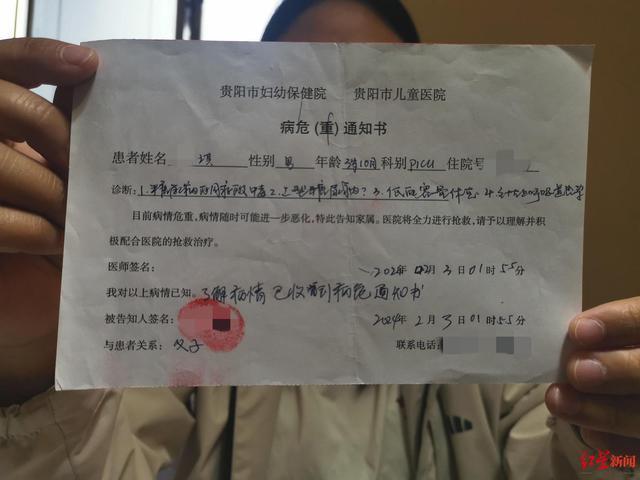 贵阳市妇幼保健院 贵阳市儿童医院
病危(重)通知书
患者姓名 琪 性别 男 年龄 3岁10月 科别 PICU 住院号
诊断: 1. 2. 3. 低血容量性休克 4.
目前病情危重,病情随时可能进一步恶化,特此告知家属。医院将全力进行抢救,请予以理解并积
极配合医院的抢救治疗。
医师签名: 2024年 02月 3日 01时55分
我对以上病情已知。了解病情 已收到病危通知书
被告知人签名: 2024年 2月 3日 01时55分
与患者关系: 父子 联系电话
红星新闻